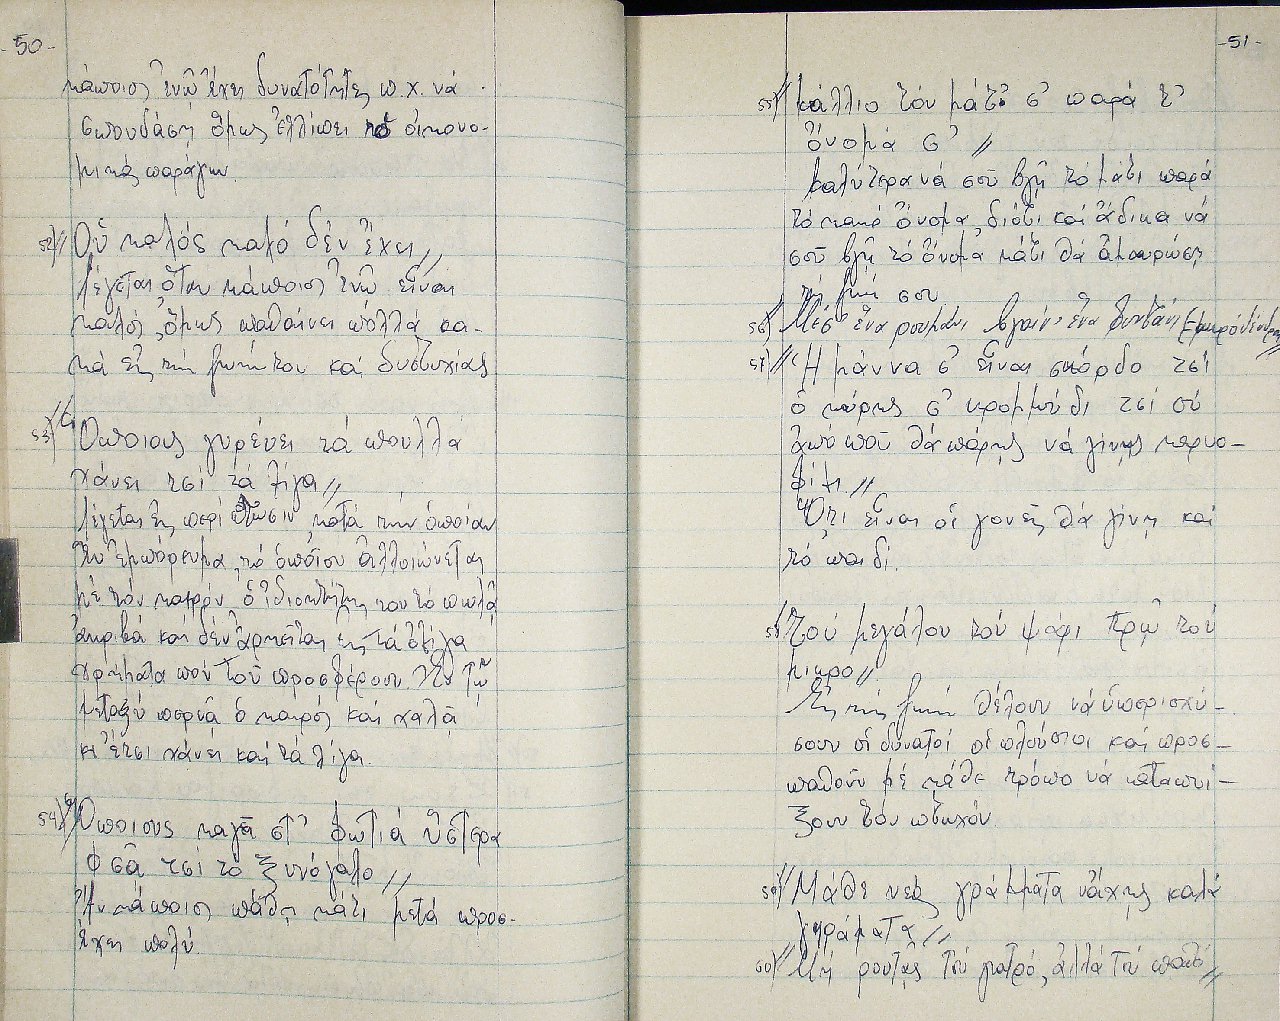 -50-
κάποιος ἐνῶ ἔχει δυνατότητες π.χ. νά
σπουδάση ὅμως ἐλλίπει ὁ οἰκονο-
μικός παράγων.
52) "Οὗ καλός καλό δέν ἔχει"
Λέγεται ὅταν κάποιος ἐνῶ εἶναι
καλός, ὅμως παθαίνει πολλά κα-
κά εἰς τήν ζωήν του καί δυστυχίας
53) "Ὅποιους γυρέυει τά πουλλά
χάνει τσί τά λίγα"
Λέγεται εἰς περίπτωσιν κατά τήν ὁποίαν
ἕν ἐμπόρευμα, τό ὁποῖον ἀλλοιώνεται
μέ τόν καιρόν, ὁ ἰδιοκτήτης του τό πωλᾶ
ἀκριβά καί δέν ἀρκεῖται εἰς τά ὀλίγα
χρήματα πού τοῦ προσφέρουν. Ἐν τῷ
μεταξύ περνᾶ ὁ καιρός καί χαλᾶ
κι ἔτσι χάνει καί τά λίγα.
54) "Ὅποιους καγῆ στ' φωτιά ὕστερα
φσᾶ τσί τό ξυνόγαλο"
Ἄν κάποιος πάθη κάτι μετά προσ-
έχει πολύ.
-51-
55) "κάλλιο τόν μάτ' σ' παρά τ'
ὄνομά σ'"
Καλύτερα νά σοῦ βγῆ τό μάτι παρά
τό κακό ὄνομα, διότι καί ἄδικα νά
σοῦ βγῆ τό ὄνομά κάτι θά ἀμαυρώση
τή ζωή σου
56) "Μέσ' ἕνα ρουμάνι βγαίν' ἕνα
57) "Ἡ μάννα σ' εἶναι σκόρδο τσί
ὁ κύρης σ' κρομμύδι τσί σύ
ἀπό ποῦ θά πάρης νά γίνης καρυο-
φίλι"
Ὅτι εἶναι οἱ γονεῖς θά γίνη καί
τό παιδί.
58) "Τού μεγάλου τού ψάρι τρῶ τού
μικρο"
Εἰς τήν ζωήν θέλουν νά ὑπερισχύ-
σουν οἱ δυνατοί οἱ πλούσιοι καί προσ-
παθοῦν μέ κάθε τρόπο νά καταπνί-
ξουν τόν πτωχόν.
59) "Μάθε νεός γράμματα νἄχης καλά
γηράματα"
60) "Μή ρουτᾶς τού γιατρό, ἀλλά τού παθό"